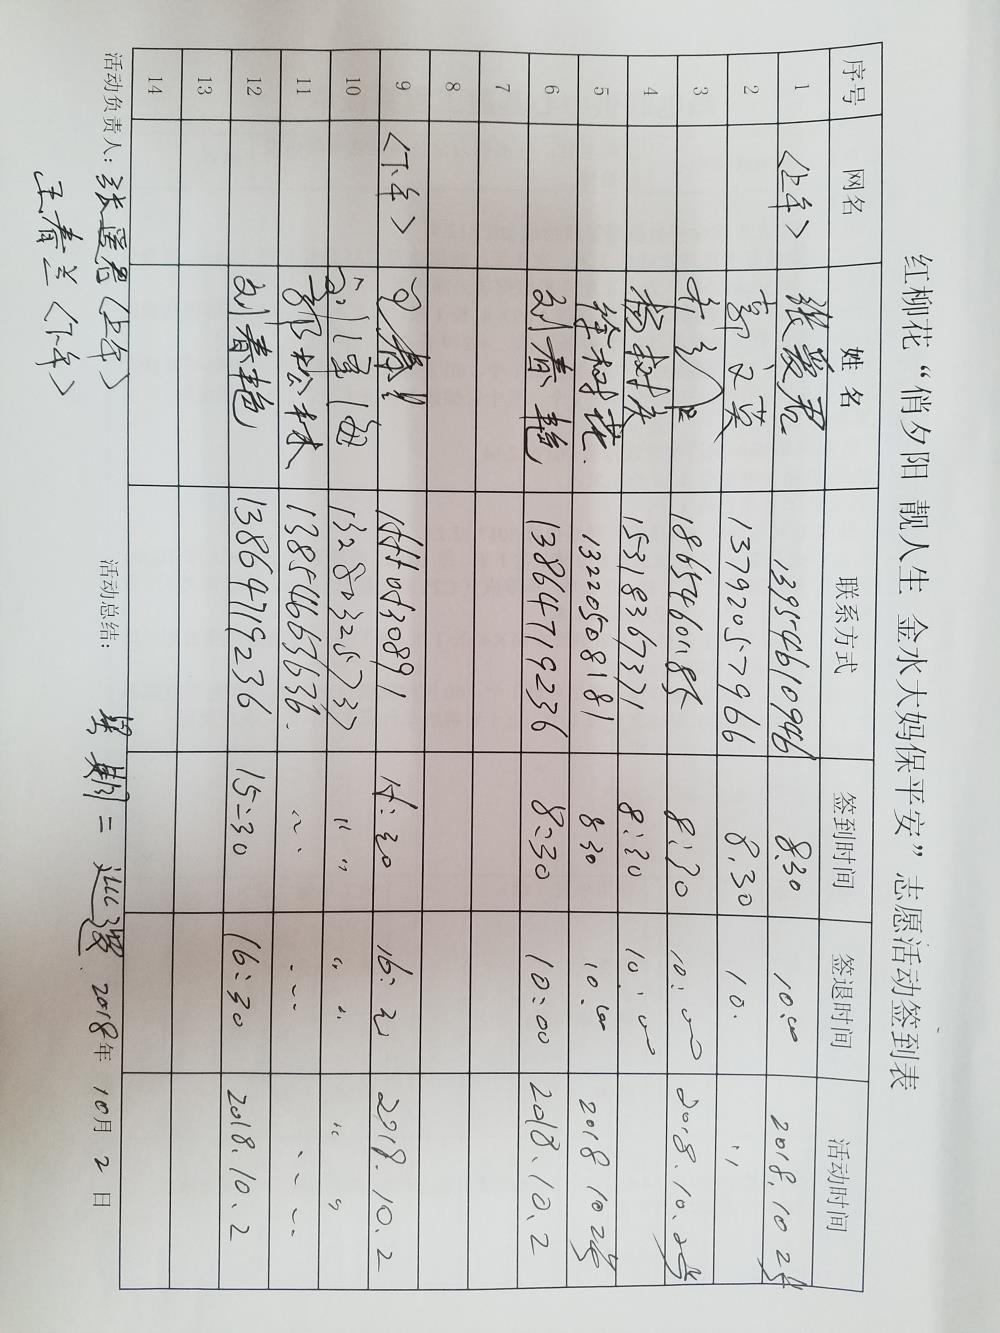 红柳花“俏夕阳 靓人生 金水大妈保平安”志愿活动签到表
序号 网名 姓名 联系方式 签到时间 签退时间 活动时间
1 <上午> 张爱君 13954610946 8:30 10:00 2018.10 2号
2 郭文英 13792057966 8.30 10. 〃
3 18654601185 8:30 10:00 2018.10.2号
4 15318367371 8:30 10:00
5 徐树花. 13220508181 8 30 10.00 2018 10 2号
6 刘春艳 13864719236 8:30 10:00 2018.10.2
7
8
9 <下午> 16:30 2018.10.2
10 13280325737 〃 〃 〃 〃 〃 〃
11 郭松林 13854663636.
12 刘春艳 13864719236 15:30 16:30 2018.10.2
13
14
活动负责人: 张爱君<上午> 活动总结: 2018年 10月 2日
王春兰<下午>